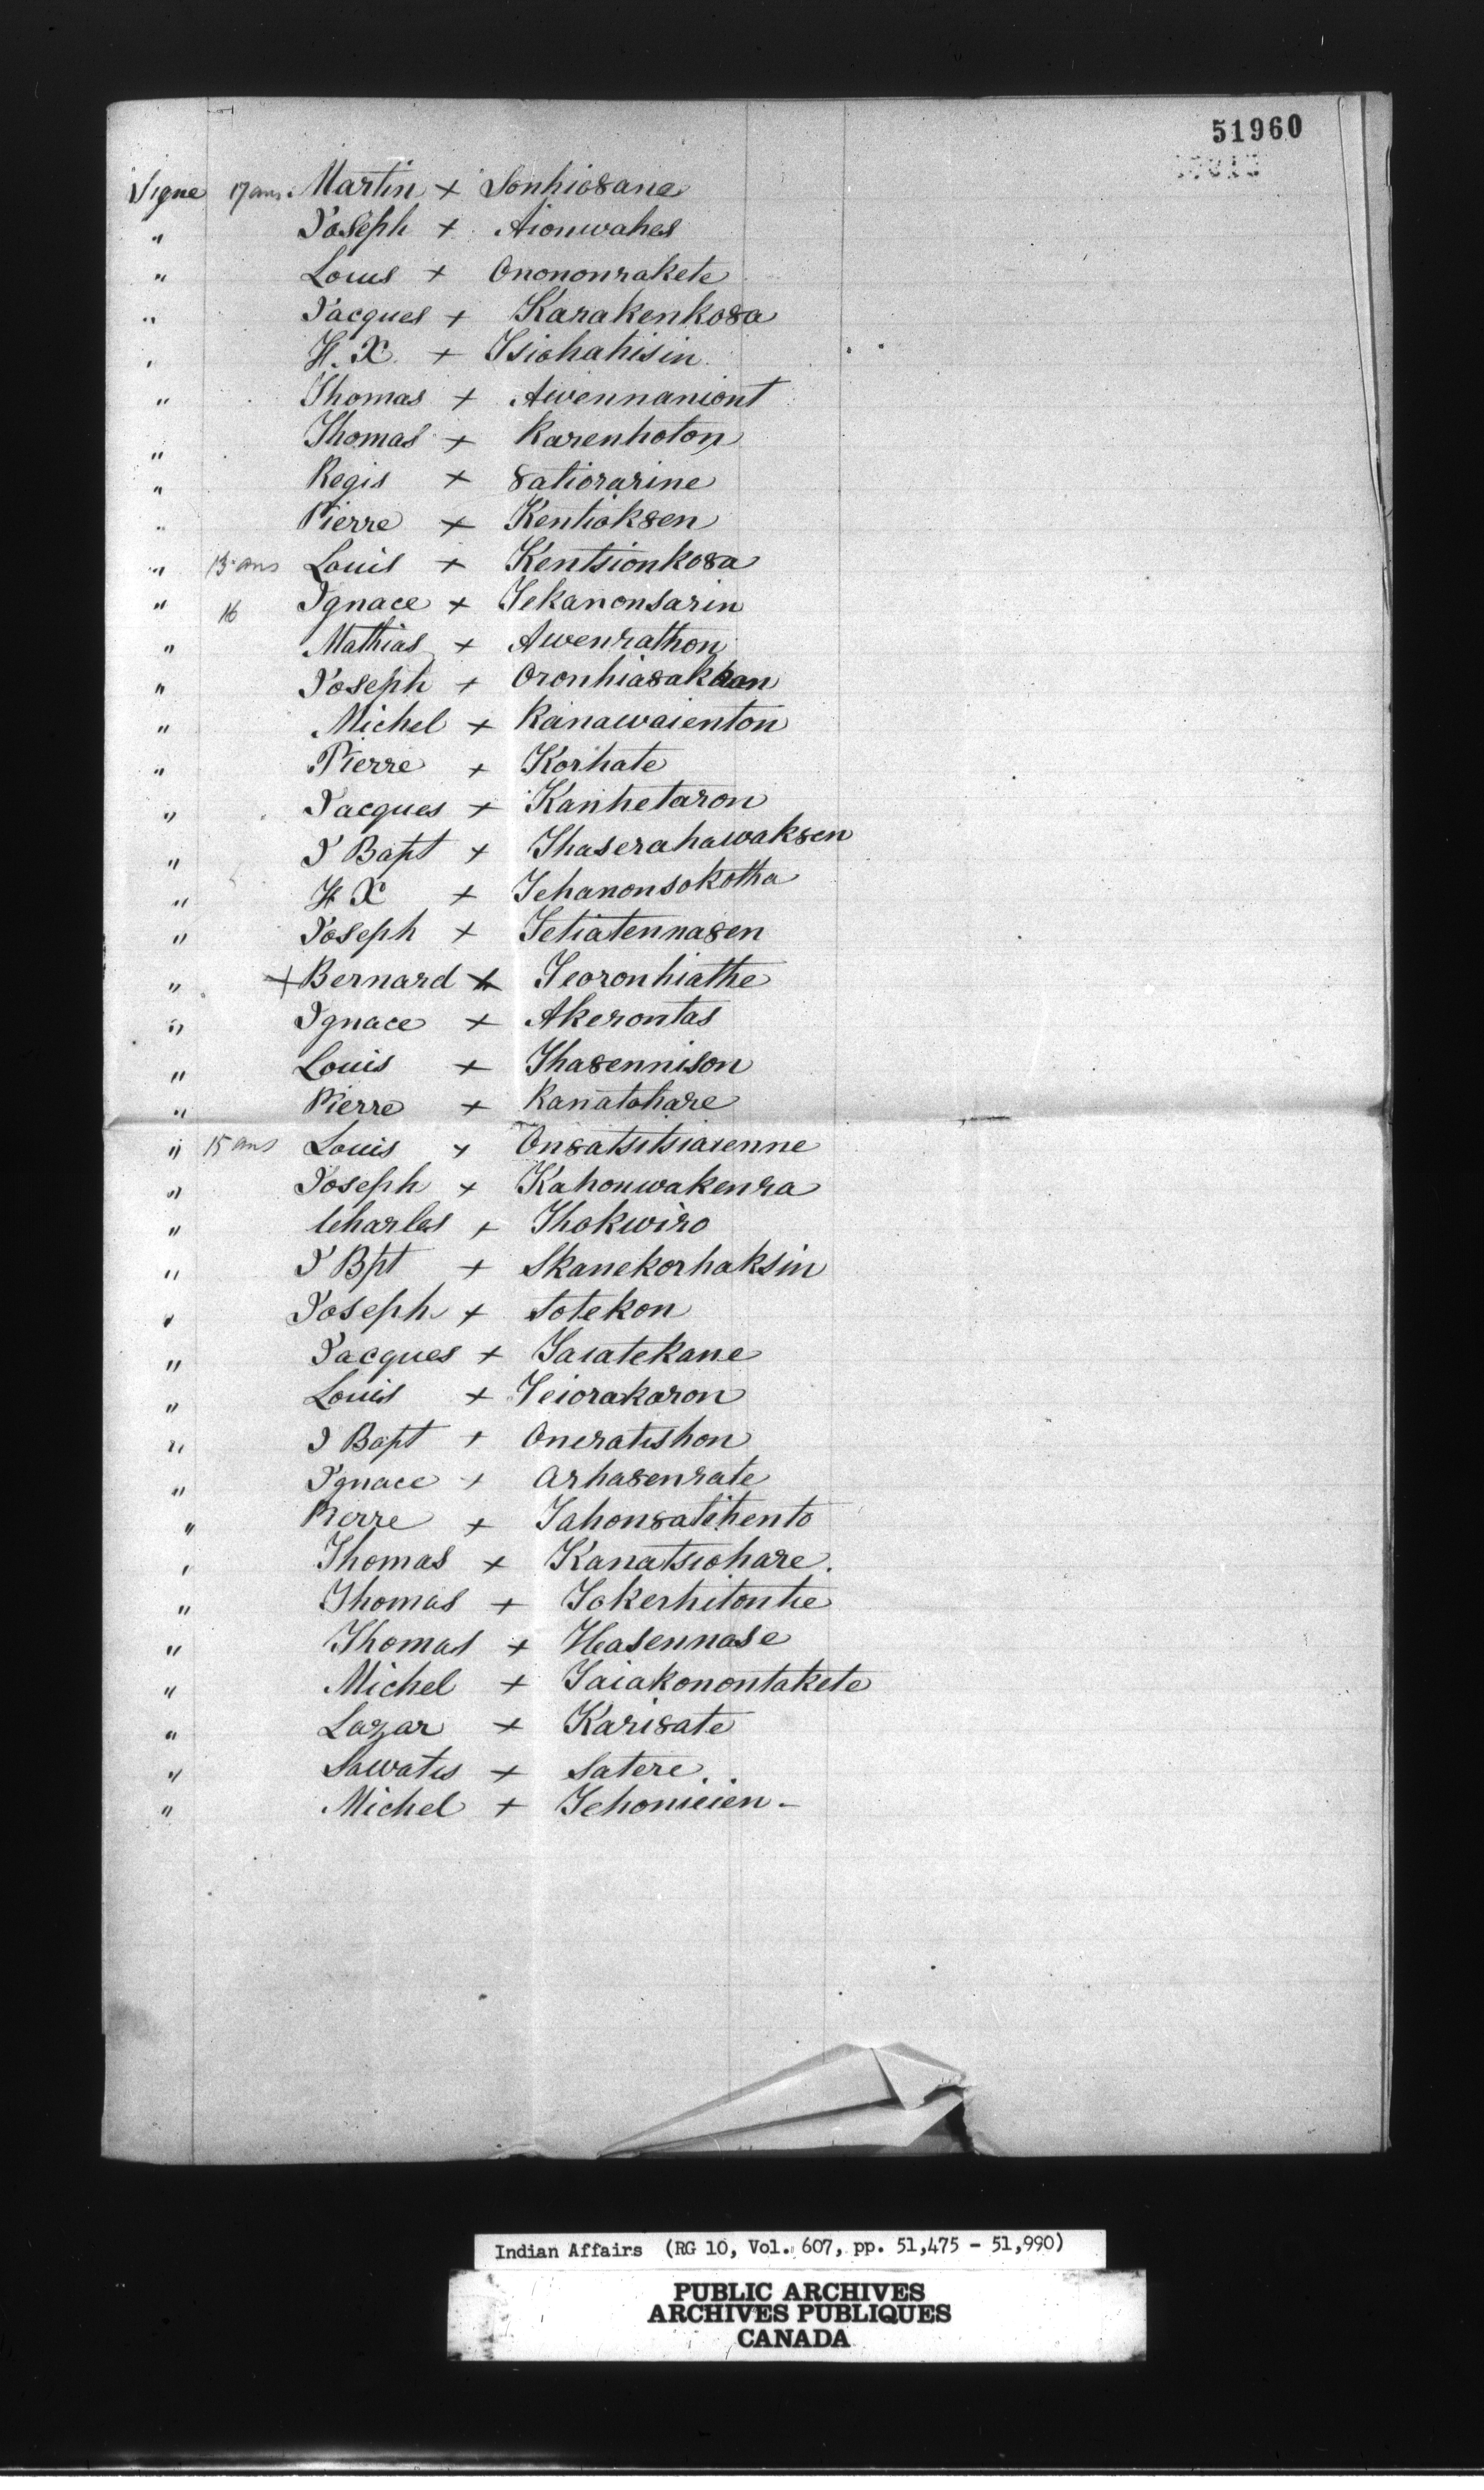 51960
Signe 17 ans. Martin + Sonhio8ane
" Joseph + Aionwahes
" Louis + Onononrakete
" Jacques + Karakenko8a
" F. X. + Tsiohahisin
" Thomas + Awennaniont
" Thomas + Karenhoton
" Regis + 8atiorarine
" Pierre + Kentiok8en
" 13 ans Louis + Kentsionko8a
" 16 Ignace + Tekanonsarin
" Mathias + Awenrathon
" Joseph + Oronhia8ak
" Michel + Kanawaienton
" Pierre + Korhate
" Jacques + Kanhetaron
" J Bapt + Thaserahawak8en
" F X + Tehanonsokotha
" Joseph + Tetiatenna8en
" + Bernard + Teoronhiathe
" Ignace + Akerontas
" Louis + Tha8ennison
" Pierre + Kanatohare
" 15 ans Louis + On8atsitsiaienne
" Joseph + Kahonwakenra
" Charles + Thokwiro
" J Bpt + Skanekorhaksin
" Joseph + Sotekon
" Jacques + Taiatekane
" Louis + Teiorakaron
" J Bapt + Oneratishon
" Ignace + Arha8enrate
" Pierre + Tahon8atihento
" Thomas + Kanatsiohare.
" Thomas + Tokerhitontie
" Thomas + Hasennase
" Michel + Taiakonontakete
" Lazar + Kari8ate
" Sawatis + Satere.
" Michel + Tehonieien -
Indian Affairs (RG 10, Vol. 607, pp. 51,475 - 51,990)
PUBLIC ARCHIVES
ARCHIVES PUBLIQUES
CANADA